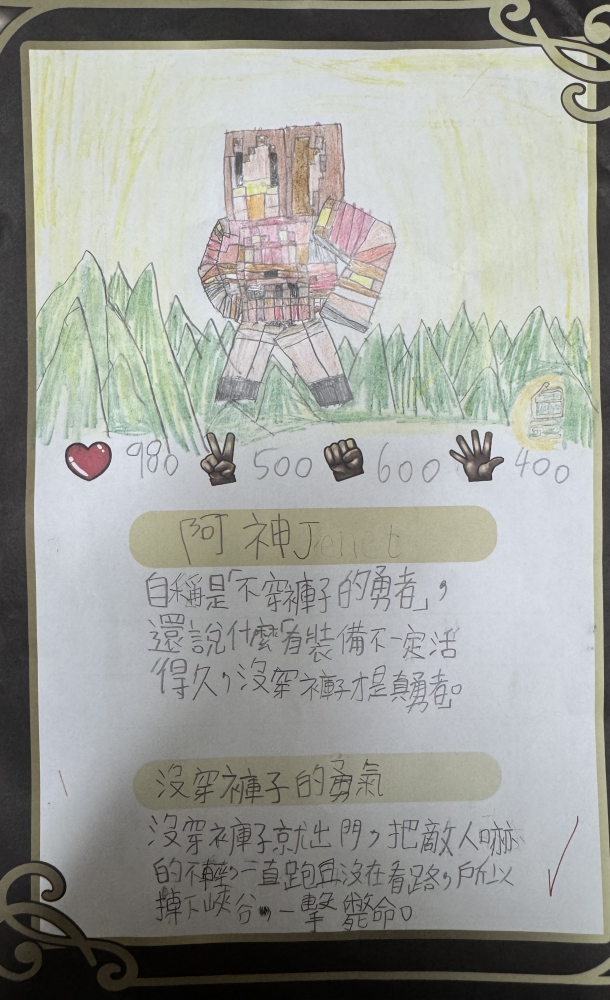 980 500 600 400
阿神Jenet
自稱是「不穿褲子的勇者」，
還說什麼「有裝備不一定活
得久，沒穿褲子才是真勇者。
沒穿褲子的勇氣
沒穿褲子就出門，把敵人嚇
的不輕，一直跑且沒在看路，所以
掉下峽谷，一擊斃命。